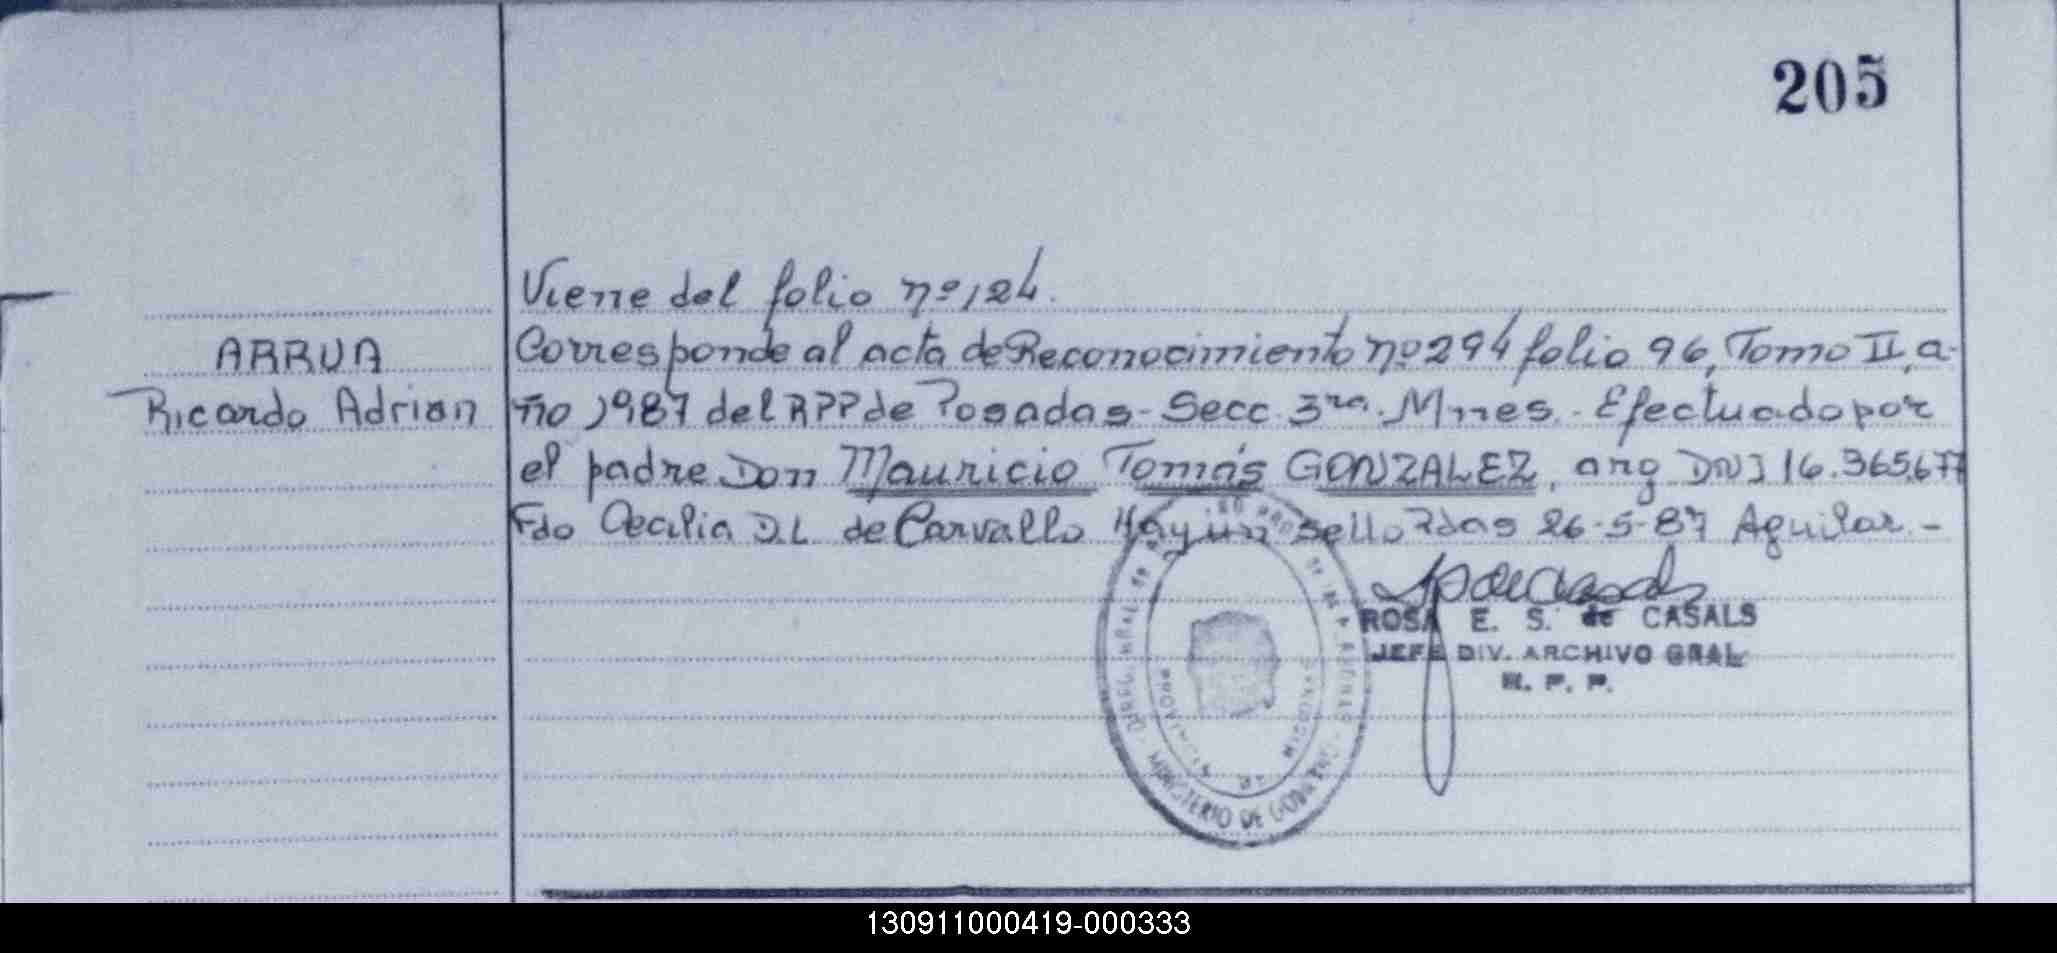 205
Viene del folio nº 124.
ARRUA
Corresponde al acta de Reconocimiento nº 294 folio 96, Tomo II, a-
Ricardo Adrian
ño 1987 del RPP de Posadas - Secc. 3ra. Mnes. - Efectuado por
el padre Don Mauricio Tomás GONZALEZ, arg DNI 16.365.677
Fdo Cecilia D.L. de Carvallo Hay un sello Pdas 26-5-87 Aguilar. -
ROSA E. S. de CASALS
JEFE DIV. ARCHIVO GRAL
R. P. P.
MINISTERIO DE GOBIERNO
PROVINCIA DE MISIONES
130911000419-000333